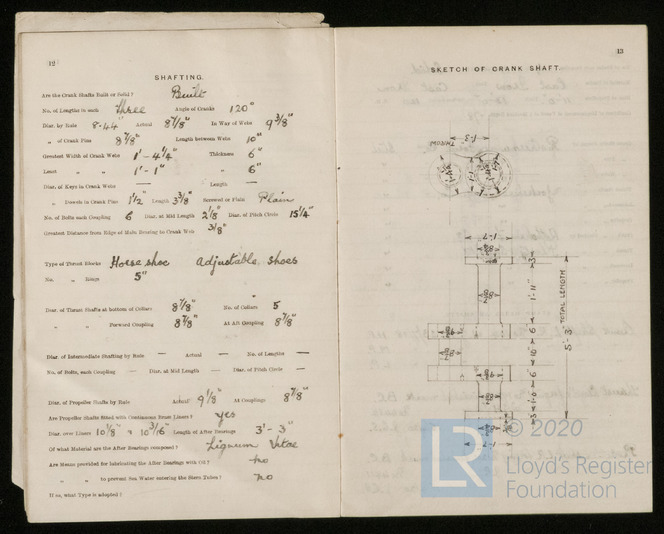 12
SHAFTING.
Are the Crank Shafts Built or Solid? Built
No. of Lengths in each Three Angle of Cranks 120°
Diar. by Rule 8.44" Actual 8 7/8" In Way of Webs 9 3/8"
„ of Crank Pins 8 7/8" Length between Webs 10"
Greatest Width of Crank Webs 1' - 4 1/4" Thickness 6"
Least „ „ 1' - 1" „ 6"
Diar. of Keys in Crank Webs — Length —
„ Dowels in Crank Pins 1 1/2" Length 3 3/8" Screwed or Plain Plain
No. of Bolts each Coupling 6 Diar. at Mid Length 2 1/8" Diar. of Pitch Circle 15 1/4"
Greatest Distance from Edge of Main Bearing to Crank Web 3/8"
Type of Thrust Blocks Horse shoe Adjustable shoes
No. „ Rings 5"
Diar. of Thrust Shafts at bottom of Collars 8 7/8" No. of Collars 5
„ „ Forward Coupling 8 7/8" At Aft Coupling 8 7/8"
Diar. of Intermediate Shafting by Rule — Actual — No. of Lengths —
No. of Bolts, each Coupling — Diar. at Mid Length — Diar. of Pitch Circle —
Diar. of Propeller Shafts by Rule Actual 9 1/8" At Couplings 8 7/8"
Are Propeller Shafts fitted with Continuous Brass Liners? yes
Diar. over Liners 10 1/8" & 10 3/16" Length of After Bearings 3' - 3"
Of what Material are the After Bearings composed? Lignum Vitae
Are Means provided for lubricating the After Bearings with Oil? no
„ „ to prevent Sea Water entering the Stern Tubes? no
If so, what Type is adopted?
13
SKETCH OF CRANK SHAFT.
1'-3"
THROW
1'-7"
3"
1'-11"
6"
10"
6"
1'-0"
3"
5'-3" TOTAL LENGTH
1'-7"
© 2020
LR
Lloyd's Register
Foundation